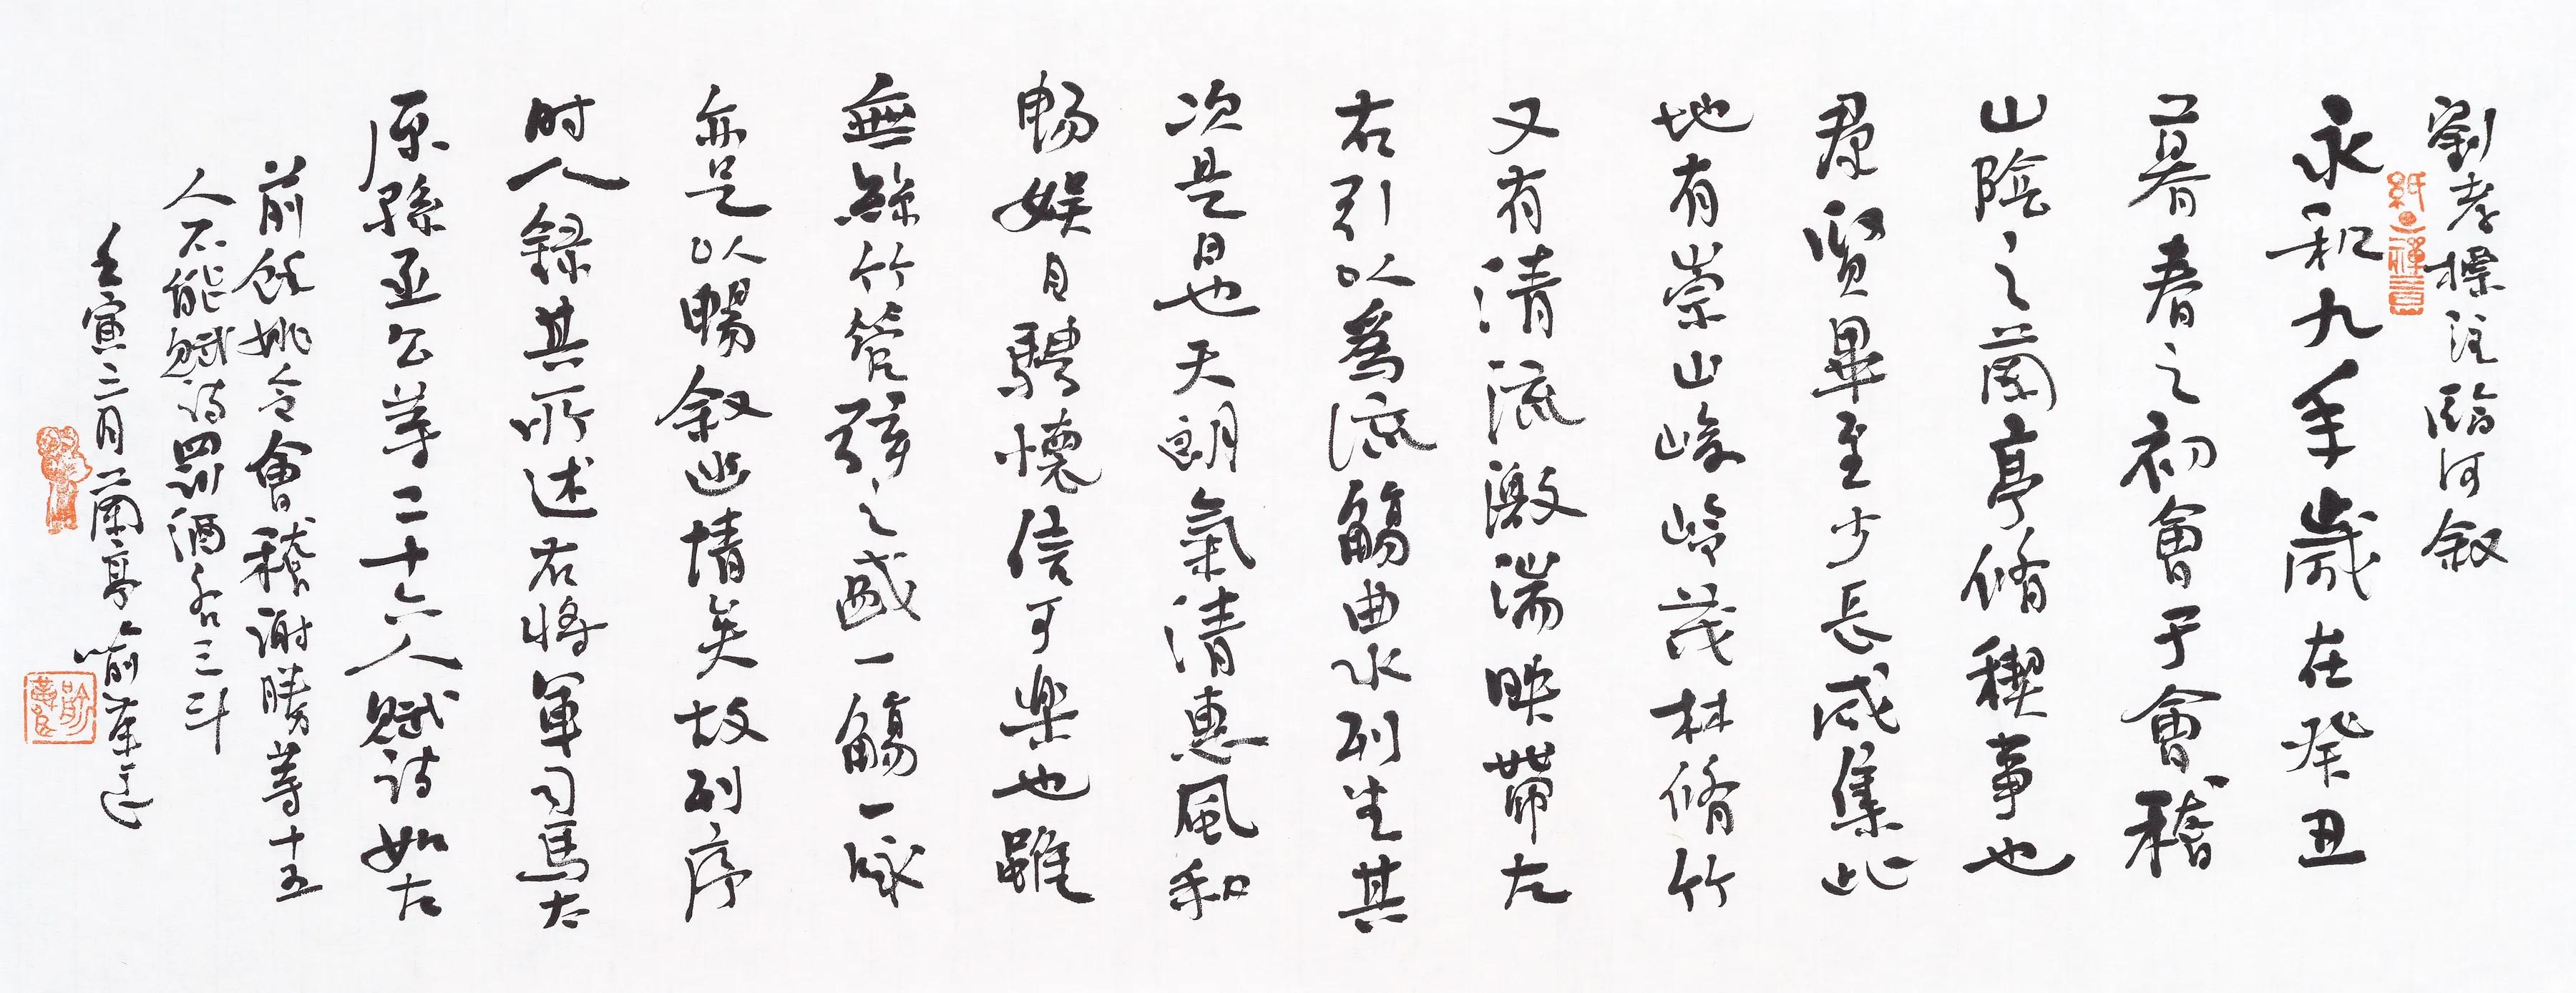 劉孝標注臨河叙
永和九年歲在癸丑
暮春之初會于會稽
山陰之蘭亭脩禊事也
羣賢畢至少長咸集此
地有崇山峻嶺茂林脩竹
又有清流激湍映帶左
右引以為流觴曲水列坐其
次是日也天朗氣清惠風和
暢娛目騁懷信可樂也雖
無絲竹管弦之盛一觴一詠
亦足以暢叙幽情矣故列序
时人録其所述右將軍司馬太
原孫丞公等二十六人賦詩如左
前餘姚令會稽謝勝等十五
人不能賦詩罰酒各三斗
壬寅三月蘭亭喻革良